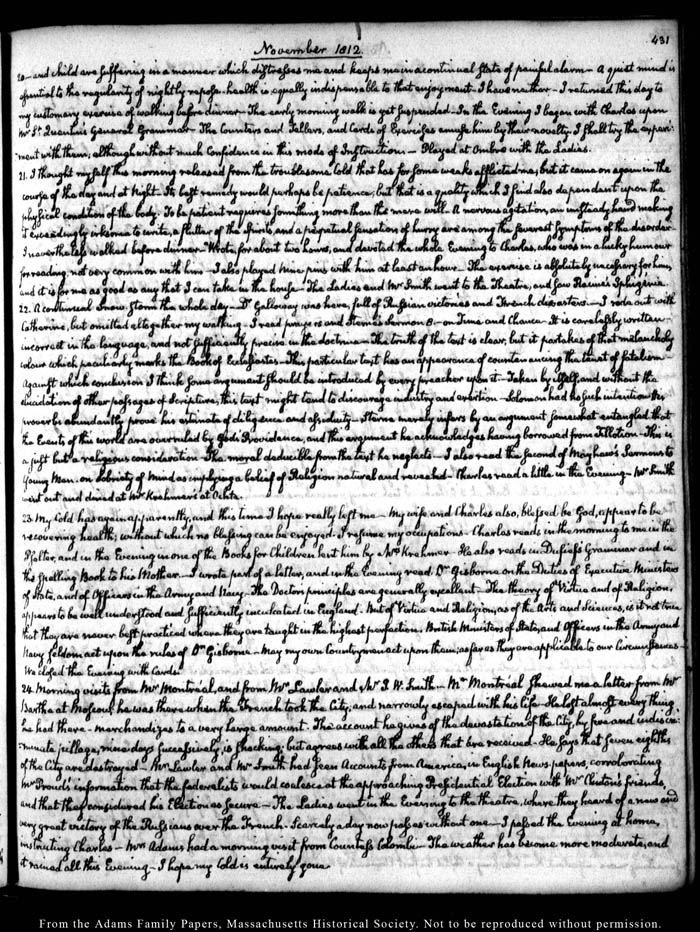 431
November 1812.
20 and child are suffering in a manner which distresses me and keeps me in a continual state of painful alarm — A quiet mind is
essential to the regularity of nightly repose. health is equally indispensable to that enjoyment. I have neither — I returned this day to
my customary exercise of walking before dinner — The early morning walk is yet suspended — In the Evening I began with Charles upon
Mr St Quentin's General Grammar — The Counters and Tellers, and Cards of Exercises amuse him by their novelty. I shall try the experi-
-ment with them, although without much Confidence in this mode of Instruction — Played at Ombre with the Ladies.
21. I thought myself this morning released from the troublesome Cold that has for some weeks afflicted me; but it came on again in the
course of the day and at Night. Its best remedy would perhaps be patience; but that is a quality which I find also dependent upon the
physical condition of the body. To be patient requires something more than the mere will. A nervous agitation, an unsteady hand making
it exceedingly irksome to write, a flutter of the Spirits and a perpetual sensation of hurry are among the severest symptoms of the disorder
I nevertheless walked before dinner — Wrote for about two hours, and devoted the whole Evening to Charles, who was in a lucky humour
for reading, not very common with him — I also played Nine pins with him at least an hour — The exercise is absolutely necessary for him,
and it is for me as good as any that I can take in the house — The Ladies and Mr Smith went to the Theatre, and saw Racine's Iphigenia
22. A continual Snow Storm the whole day — Dr Galloway was here, full of Russian victories and French disasters — I rode out with
Catherine, but omitted altogether my walking — I read prayers and Sterne's Sermon 8. on Time and Chance — It is carelessly written
incorrect in the language, and not sufficiently precise in the doctrine — The truth of the text is clear, but it partakes of that melancholy
colour which peculiarly marks the Book of Ecclesiastes — This particular text has an appearance of countenancing the tenet of fatalism —
Against which conclusion I think some argument should be introduced by every preacher upon it — Taken by itself, and without the
elucidation of other passages of Scripture, this text might tend to discourage industry and exertion — Solomon had no such intention His
proverbs abundantly prove his estimate of diligence and assiduity — Sterne merely infers by an argument somewhat entangled that
the Events of this world are overruled by God's Providence, and this argument he acknowledges having borrowed from Tillotson — This is
a just but a religious consideration — The moral deducible from the text he neglects — I also read the second of Mayhew's Sermons to
Young Men. on Sobriety of Mind as implying a belief of Religion natural and revealed — Charles read a little in the Evening — Mr Smith
went out and dined at Mr Krehmer's at Ochta.
23. My Cold has again apparently, and this time I hope really left me — My wife and Charles also, blessed be God, appear to be
recovering health; without which no blessing can be enjoyed — I resume my occupations — Charles reads in the morning to me in the
Psalter, and in the Evening in one of the Books for Children lent him by Mrs Krehmer — He also reads in Dufief's Grammar and in
the Spelling Book to his Mother — I wrote part of a letter, and in the Evening read Dr Gisborne on the Duties of Executive Ministers
of State, and of Officers in the Army and Navy. The Doctor's principles are generally excellent — The theory of Virtue and of Religion,
appears to be well understood and sufficiently inculcated in England. But of Virtue and Religion, as of the Arts and Sciences, is it not true
that they are never best practiced where they are taught in the highest perfection; British Ministers of State, and Officers in the Army and
Navy seldom act upon the rules of Dr Gisborne — May my own Countrymen act upon them, as far as they are applicable to our Circumstances —
We closed the Evening with Cards.
24. Morning visits from Mr Montréal, and from Mr Lawler and Mr J. W. Smith — Mr Montréal shewed me a letter from Mr
Barthe at Moscow; he was there when the French took the City, and narrowly escaped with his life — He lost almost every thing
he had there — merchandize to a very large amount. The account he gives of the devastation of the City, by fire and indiscri-
-minate pillage, nine days successively, is shocking; but agrees with all the others that are received — He says that seven eighths
of the City are destroyed — Mr Lawler and Mr Smith had seen Accounts from America, in English News-papers, corroborating
Mr Proud's information that the federalists would coalesce at the approaching Presidential Election with Mr Clinton's friends,
and that they considered his Election as secure — The Ladies went in the Evening to the theatre, where they heard of a new and
very great victory of the Russians over the French — Scarcely a day now passes without one — I passed the Evening at home,
instructing Charles — Mrs Adams had a morning visit from Countess Colombi — The weather has become more moderate, and
it rained all this Evening — I hope my Cold is entirely gone.
From the Adams Family Papers, Massachusetts Historical Society. Not to be reproduced without permission.